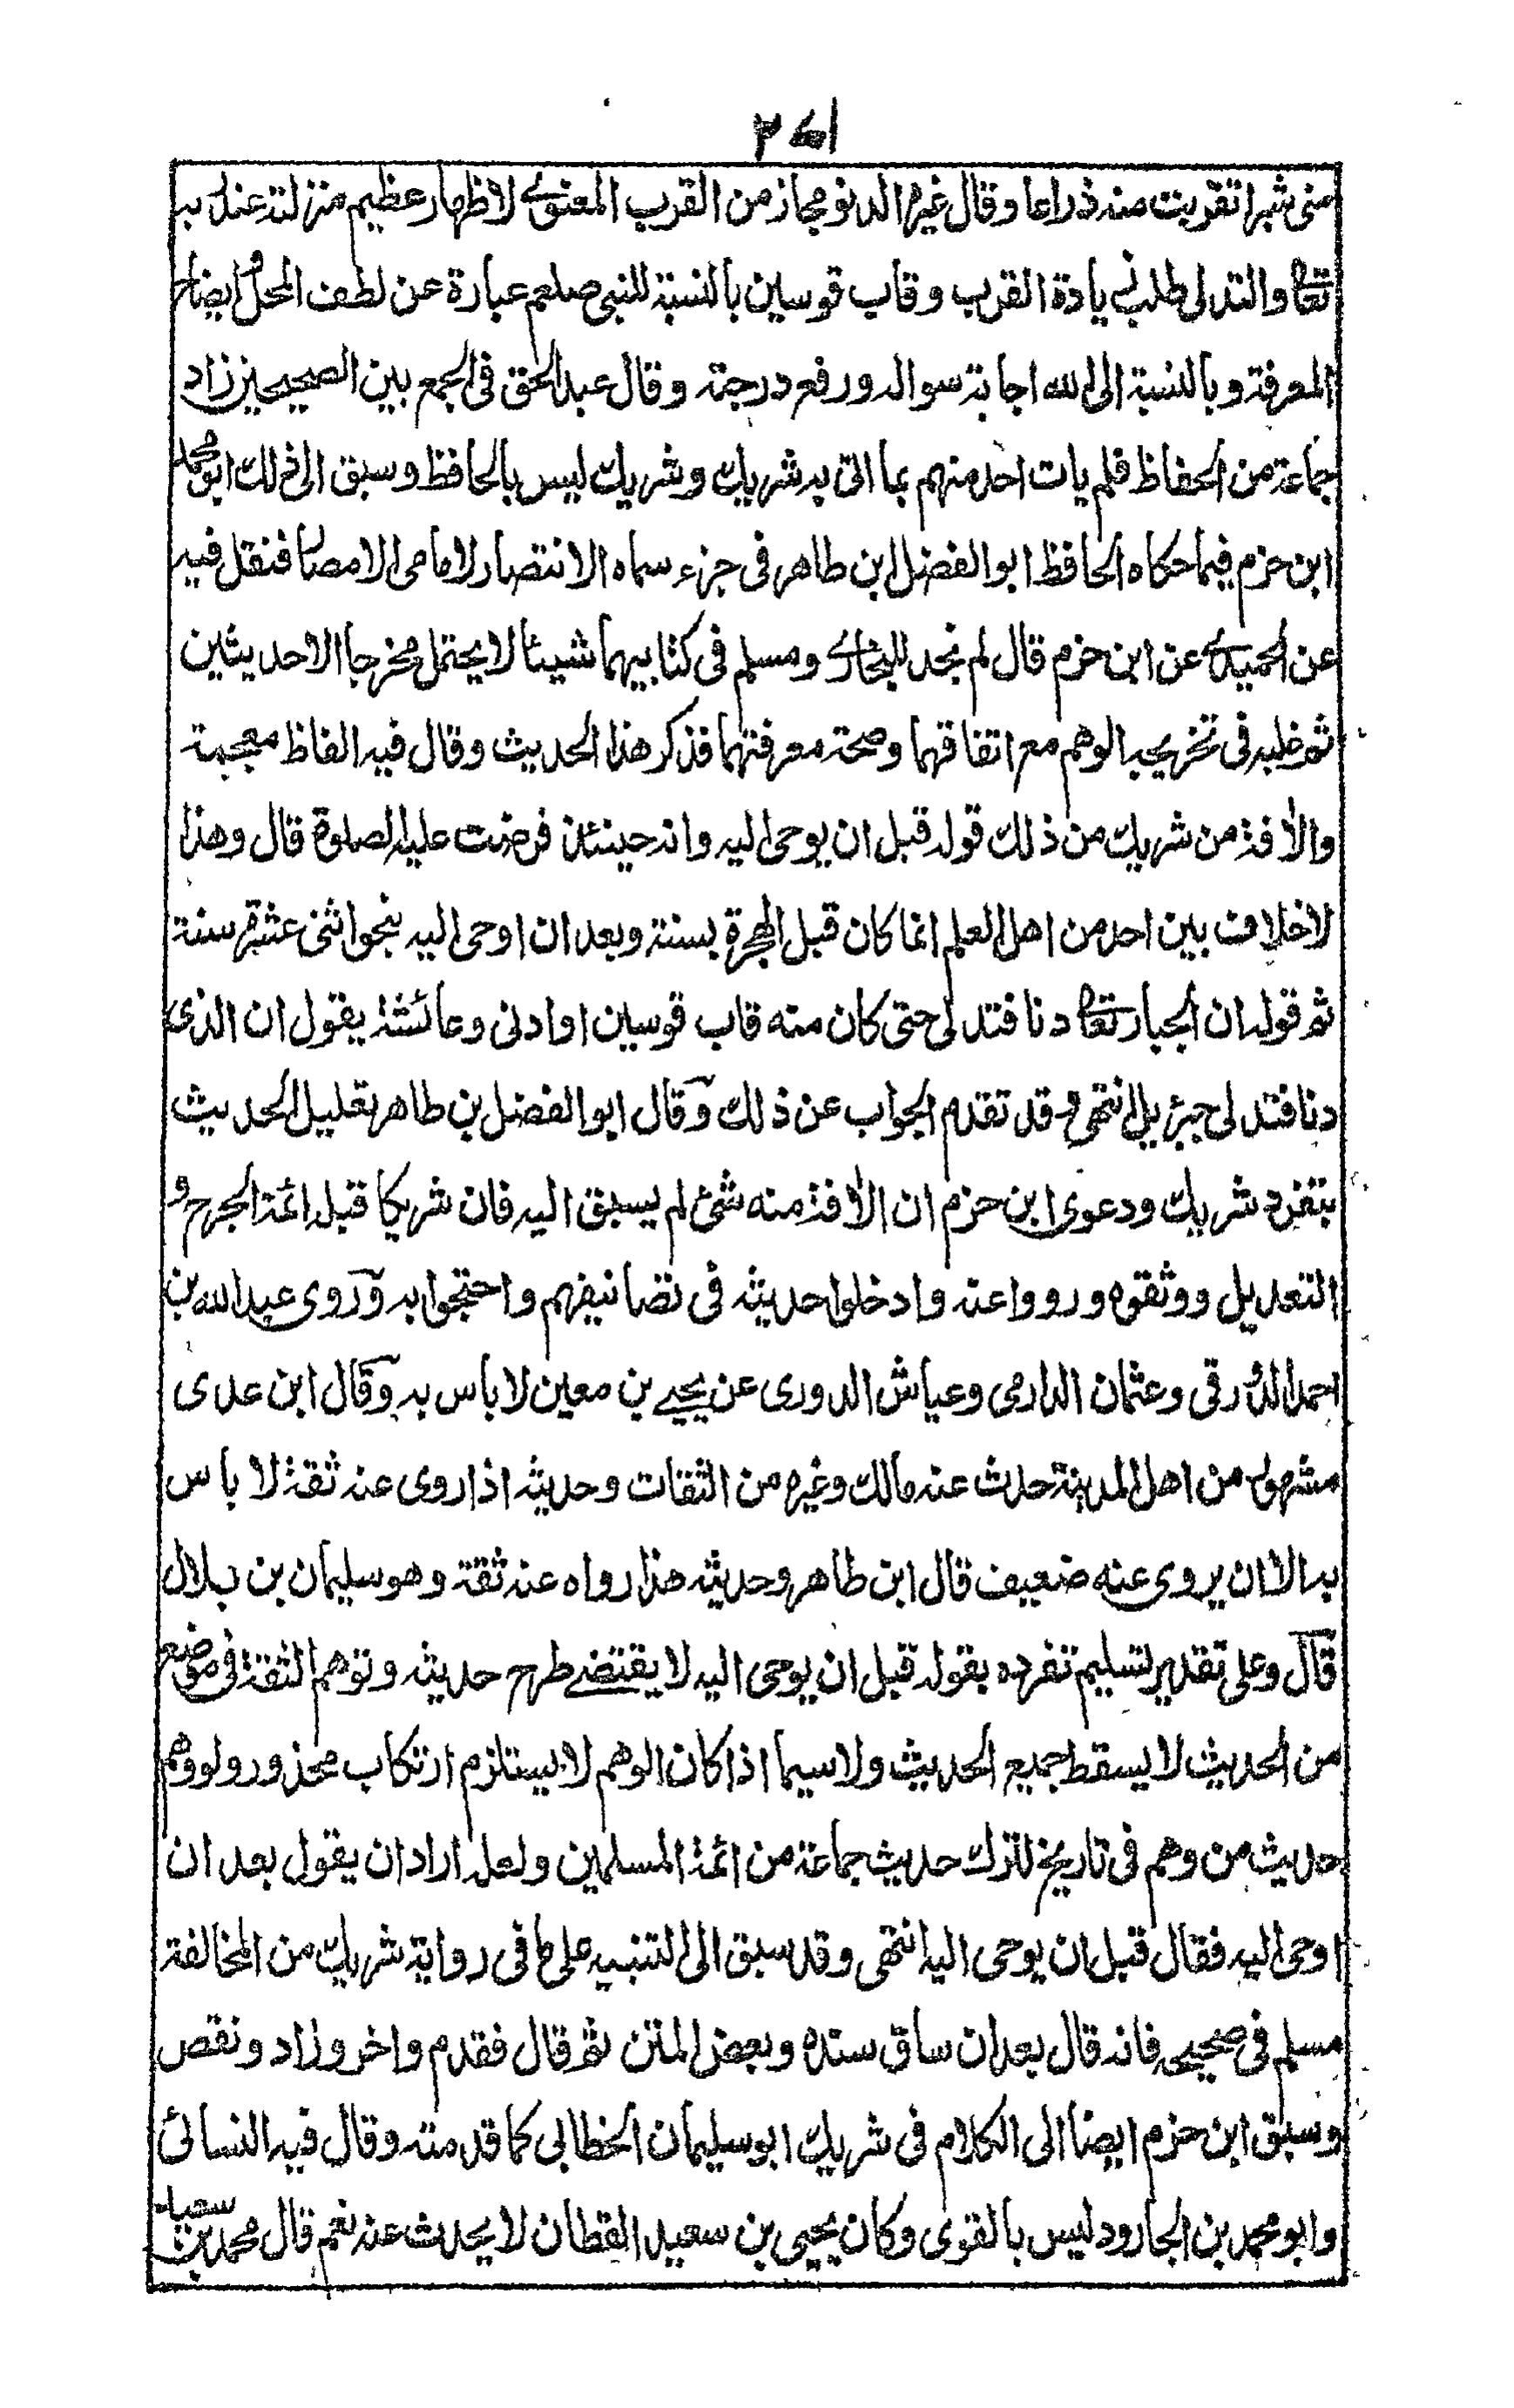 منى شبرا تقربت منه ذراعا وقال غيره الدنو مجاز من القرب المعنوى لاظهار عظيم منزلته عند ربه
تعالى والتدلى طلب زيادة القرب وقاب قوسين بالنسبة للنبى صلعم عبارة عن لطف المحل وايضاح
المعرفة وبالنسبة الى الله اجابة سواله ورفع درجته وقال عبد الحق فى الجمع بين الصحيحين زاد
جماعة من الحفاظ فلم يات احد منهم بما اتى به شريك وشريك ليس بالحافظ وسبق الى ذلك ابو محمد
ابن حزم فيما حكاه الحافظ ابو الفضل ابن طاهر فى جزء سماه الانتصار لامامى الامصار فنقل فيه
عن الحميدى عن ابن حزم قال لم نجد للبخارى ومسلم فى كتابيهما شيئا لا يحتمل مخرجا الا حديثين
ثم غلبه فى تخريجه الوهم مع اتفاقهما وصحة معرفتهما فذكر هذا الحديث وقال فيه الفاظ معجمة
والافة من شريك من ذلك قوله قبل ان يوحى اليه وانه حينئذ فرضت عليه الصلوة قال وهذا
لا خلاف بين احد من اهل العلم انما كان قبل الهجرة بسنة وبعد ان اوحى اليه بنحو اثنى عشرة سنة
ثم قوله ان الجبار تعالى دنا فتدلى حتى كان منه قاب قوسين او ادنى وعائشة يقول ان الذى
دنا فتدلى جبرئيل انتهى وقد تقدم الجواب عن ذلك وقال ابو الفضل بن طاهر تعليل الحديث
بتفرد شريك ودعوى ابن حزم ان الافة منه شئ لم يسبق اليه فان شريكا قبله ائمة الجرح و
التعديل ووثقوه ورووا عنه وادخلوا حديثه فى تصانيفهم واحتجوا به وروى عبد الله بن
احمد الدورقى وعثمان الدارمى وعياش الدورى عن يحيى بن معين لا باس به وقال ابن عدى
مشهور من اهل المدينة حدث عنه مالك وغيره من الثقات وحديثه اذا روى عنه ثقة لا باس
به الا ان يروى عنه ضعيف قال ابن طاهر وحديثه هذا رواه عنه ثقة وهو سليمان بن بلال
قال وعلى تقدير تسليم تفرده بقوله قبل ان يوحى اليه لا يقتضى طرح حديثه وتوهم الثقة فى موضع
من الحديث لا يسقط جميع الحديث ولا سيما اذا كان الوهم لا يستلزم ارتكاب محذور ولو وهم
حديث من وهم فى تاريخ لترك حديث جماعة من ائمة المسلمين ولعله اراد ان يقول بعد ان
اوحى اليه فقال قبل ان يوحى اليه انتهى وقد سبق الى التنبيه على ما فى رواية شريك من المخالفة
مسلم فى صحيحه فانه قال بعد ان ساق سنده وبعض المتن ثم قال فقدم واخر وزاد ونقص
وسبق ابن حزم ايضا الى الكلام فى شريك ابو سليمان الخطابى كما قدمته وقال فيه النسائى
وابو محمد بن الجارود ليس بالقوى وكان يحيى بن سعيد القطان لا يحدث عنه نعم قال محمد بن سعيد